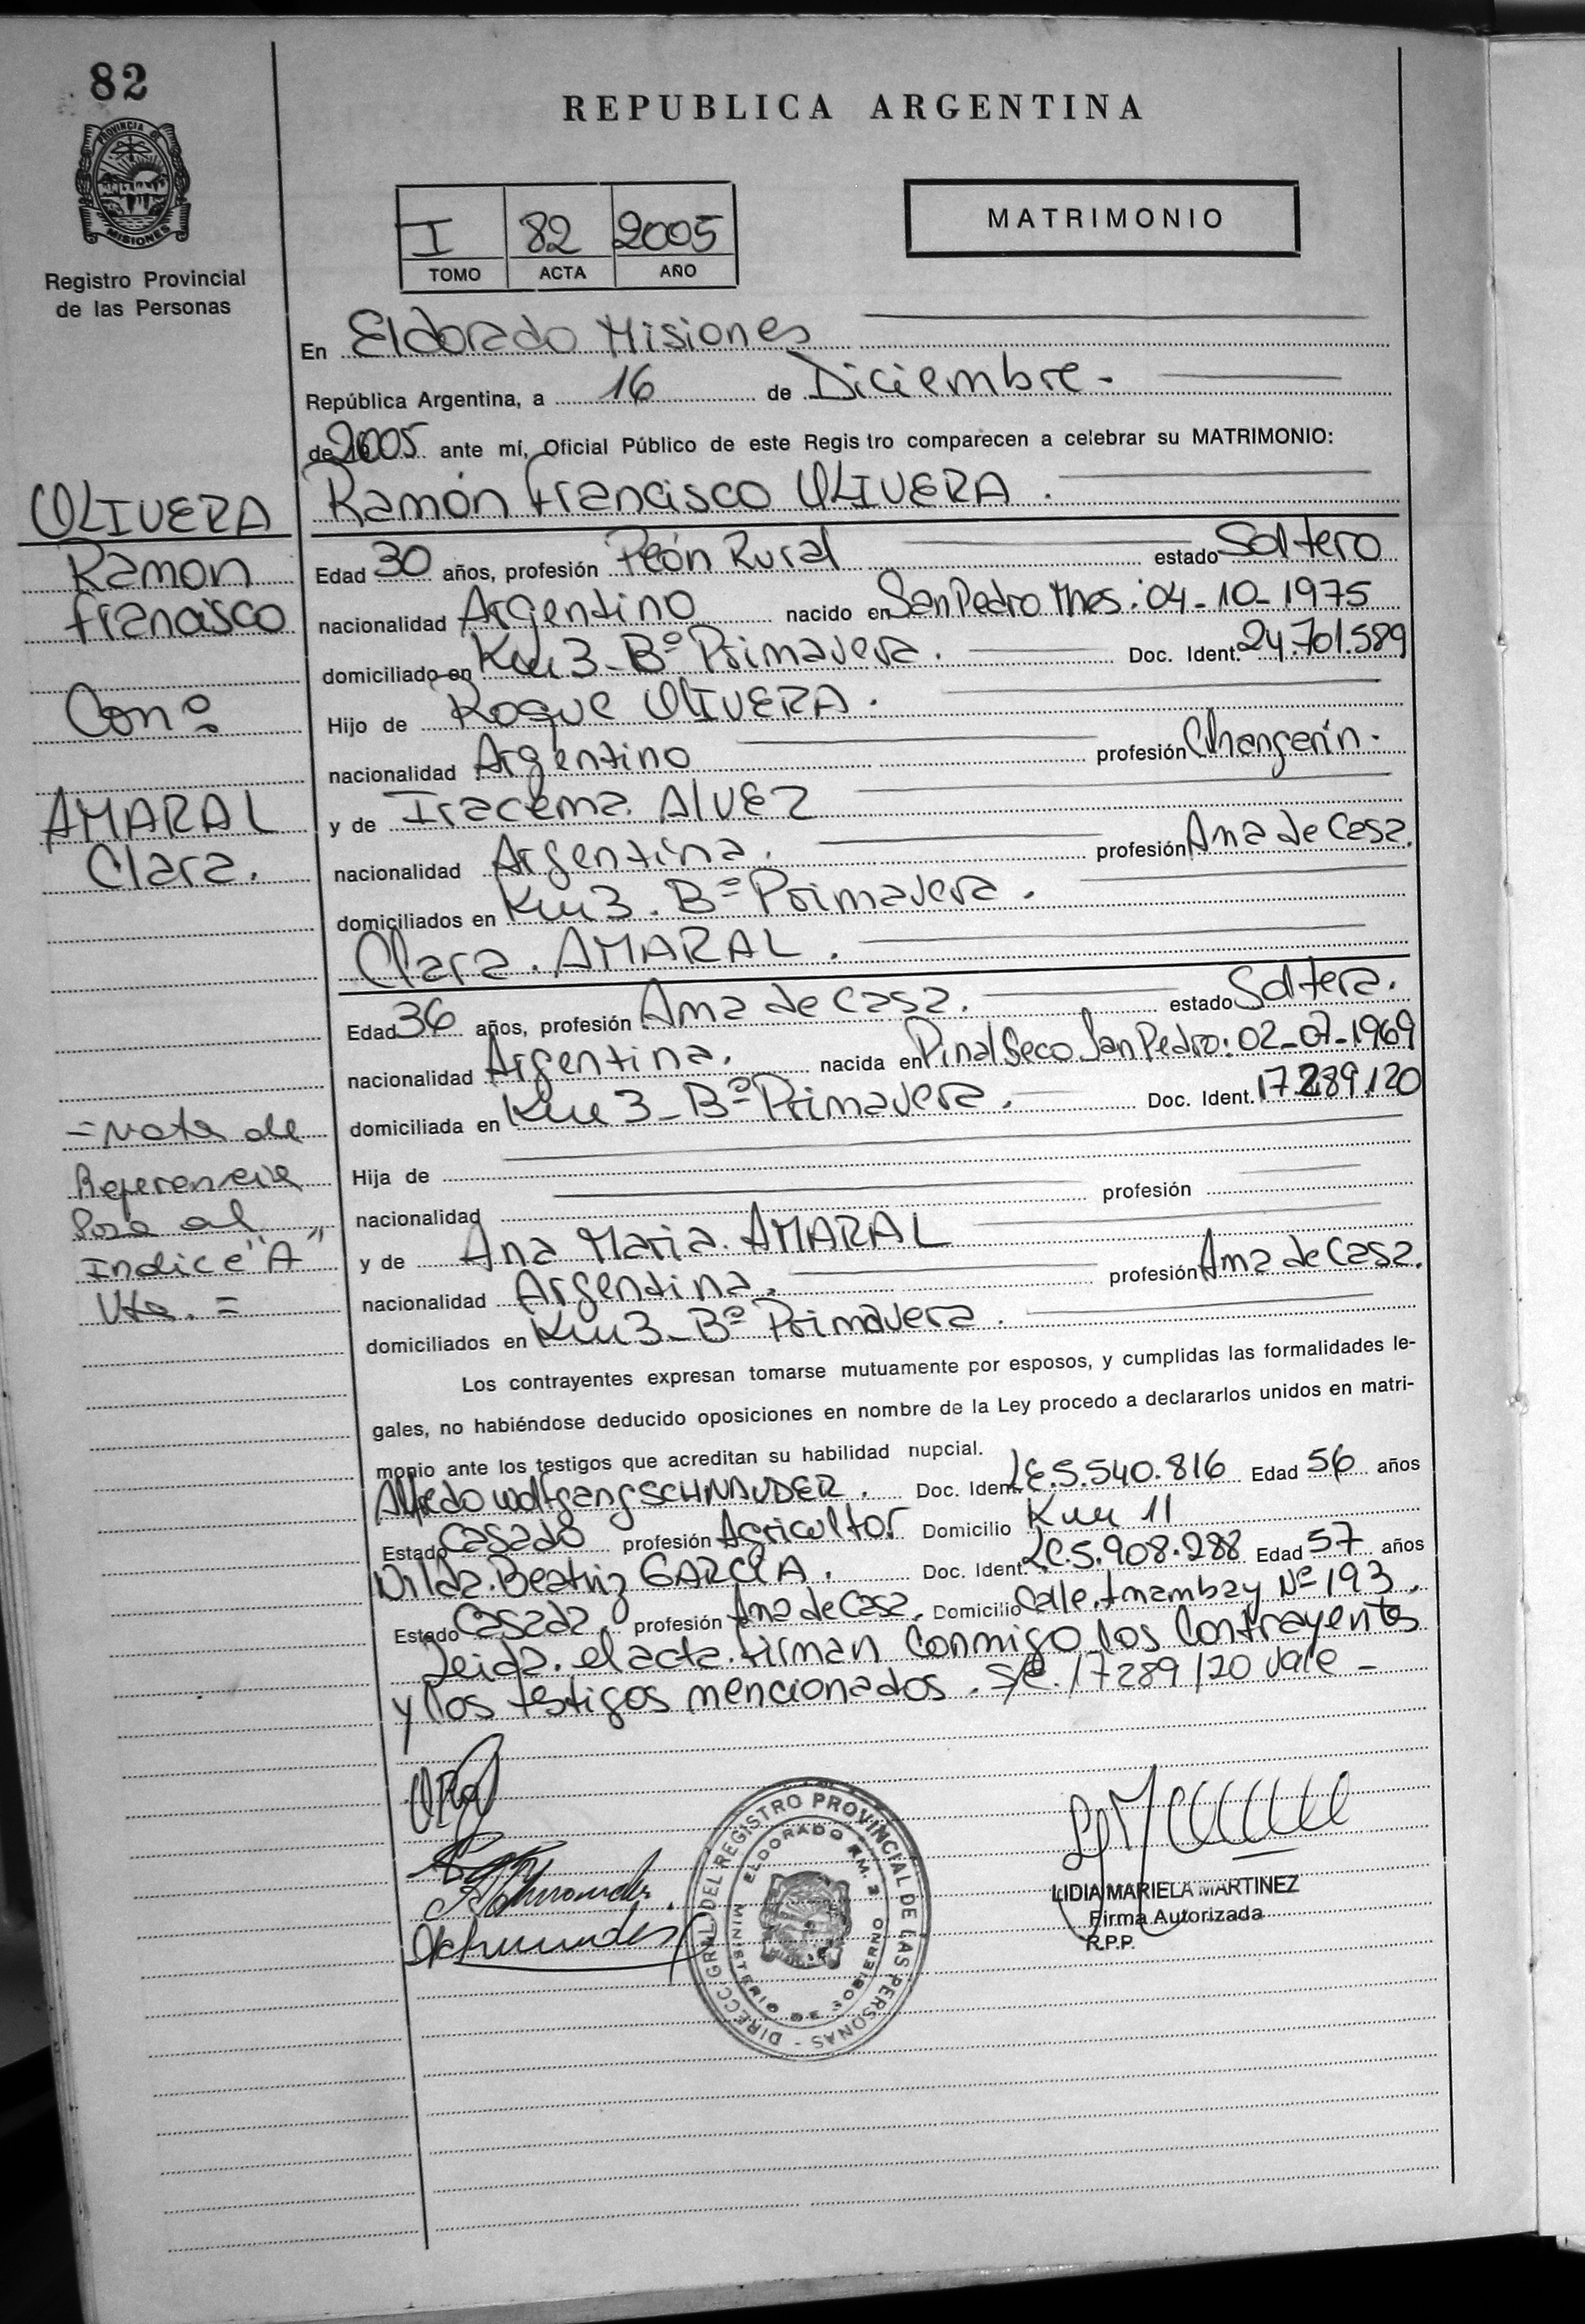 82
REPUBLICA ARGENTINA
PROVINCIA DE
MISIONES
Registro Provincial
de las Personas
I 82 2005
TOMO ACTA AÑO
MATRIMONIO
En Eldorado Misiones
República Argentina, a 16 de Diciembre.-
de 2005 ante mí, Oficial Público de este Regis tro comparecen a celebrar su MATRIMONIO:
OLIVERA
Ramon
Francisco
Con:
AMARAL
Clara.
Ramón Francisco OLIVERA.
Edad 30 años, profesión Peón Rural estado Soltero
nacionalidad Argentino nacido en San Pedro Mnes: 04-10-1975
domiciliado en Km 3-Bº Primavera. Doc. Ident. 24.701.589
Hijo de Roque OLIVERA.
nacionalidad Argentino profesión Changarín.
y de Iracema. ALVEZ
nacionalidad Argentina. profesión Ama de Casa.
domiciliados en Km 3. Bº Primavera.
Clara. AMARAL.
Edad 36 años, profesión Ama de Casa. estado Soltera.
nacionalidad Argentina. nacida en Pinal Seco San Pedro: 02-07-1969
domiciliada en Km 3-Bº Primavera. Doc. Ident. 17.289.120
Hija de
nacionalidad profesión
y de Ana Maria. AMARAL
nacionalidad Argentina. profesión Ama de Casa.
domiciliados en Km 3-Bº Primavera.
=Nota de
Referencia
Pasa al
Indice "A"
Vta. =
Los contrayentes expresan tomarse mutuamente por esposos, y cumplidas las formalidades le-
gales, no habiéndose deducido oposiciones en nombre de la Ley procedo a declararlos unidos en matri-
monio ante los testigos que acreditan su habilidad nupcial.
Alfredo Wolfgang SCHNAUDER. Doc. Ident. LE.5.540.816 Edad 56 años
Estado Casado profesión Agricultor Domicilio Km 11
Nilda. Beatriz GARCIA. Doc. Ident. LC.5.908.288 Edad 57 años
Estado Casada. profesión Ama de Casa. Domicilio Calle. Amambay Nº 193.
Leida. el acta. firman conmigo los Contrayentes
y los testigos mencionados. S/e. 17289120 Vale-
DIRECC. GRAL. DEL REGISTRO PROVINCIAL DE LAS PERSONAS -
ELDORADO KM. 2
MINISTERIO DE GOBIERNO
LIDIA MARIELA MARTINEZ
Firma Autorizada
R.P.P.